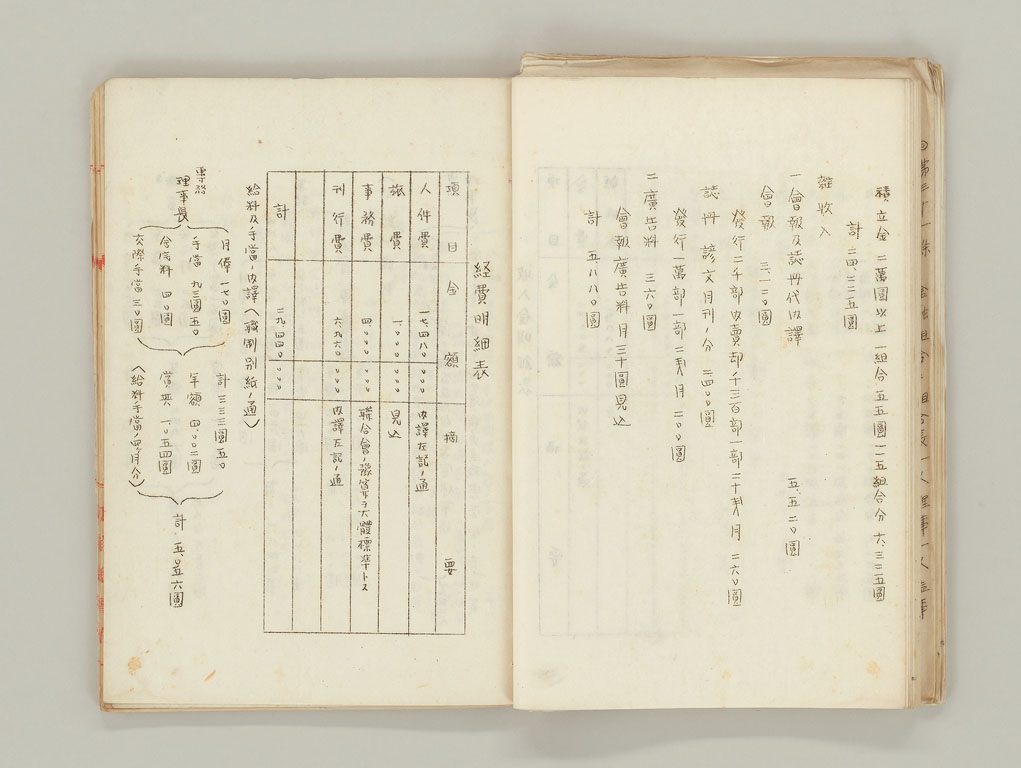 積立金 二萬圓以上一組合五五圓一一五組合分 六、三二五圓
計 二四、三二五圓
雜收入
一 會報及誌册代內譯 五、五二〇圓
會報 三、一二〇圓
發行二千部內賣却千三百部一部二十銭月 二六〇圓
誌册 諺文月刊ノ分 二、四〇〇圓
發行一萬部一部二銭月 二〇〇圓
二 廣告料 三六〇圓
會報廣告料月三十圓見込
計 五、八八〇圓
経費明細表
項目 金額 摘要
人件費 一七、四八八〇〇〇 內譯左記ノ通
旅費 一、〇〇〇〇〇〇 見込
事務費 四、〇〇〇〇〇〇 聯合會ノ豫算ヲ大體標準トス
刊行費 六、九六〇〇〇〇 內譯左記ノ通
計 二九、四四〇〇〇〇
給料及手當ノ內譯(職制別紙ノ通)
專務
理事長
月俸 一七〇圓
手當 九三圓五〇
舍宅料 四〇圓
交際手當 三〇圓
計 三三三圓五〇
年額 四、〇〇二圓
賞與 一、〇五四圓
(給料手當ノ四、月分)
計 五、〇五六圓